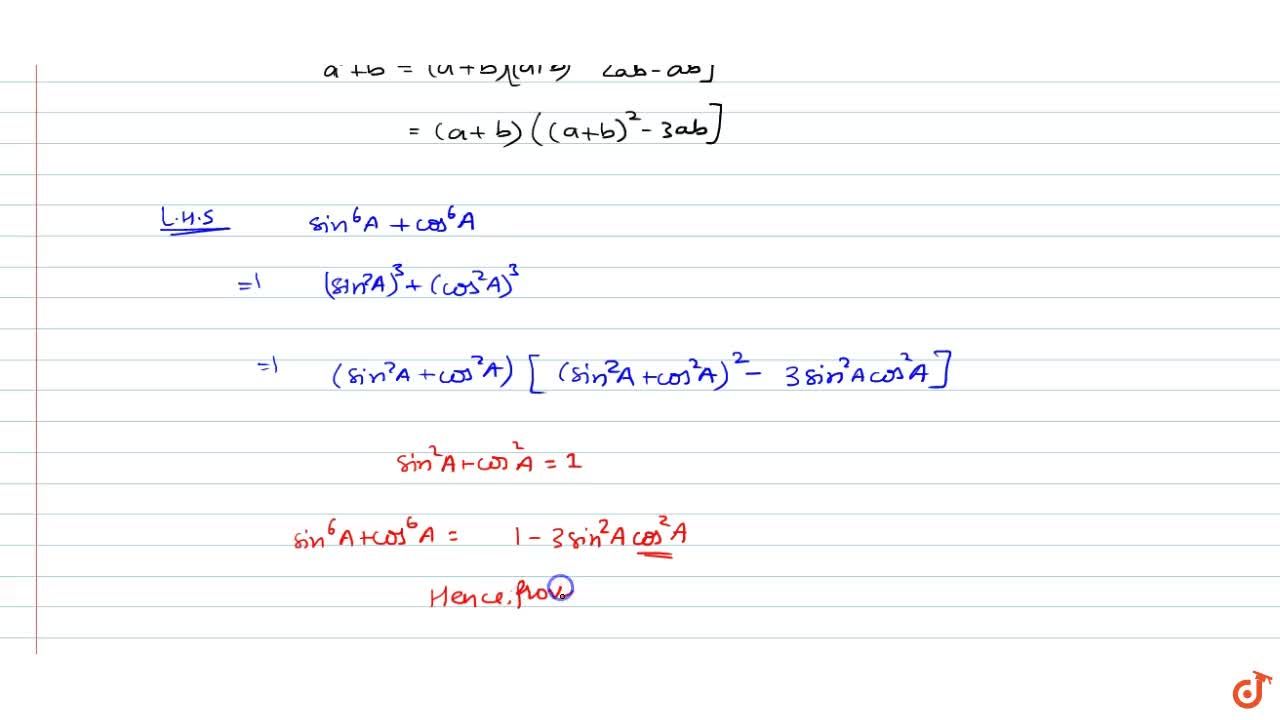 = (a+b)((a+b)² - 3ab]
L.H.S sin⁶A + cos⁶A
=1 (sin²A)³ + (cos²A)³
=1 (sin²A + cos²A) [ (sin²A + cos²A)² - 3 sin²A cos²A ]
sin²A + cos²A = 1
sin⁶A + cos⁶A = 1 - 3 sin²A cos²A
Hence, prov